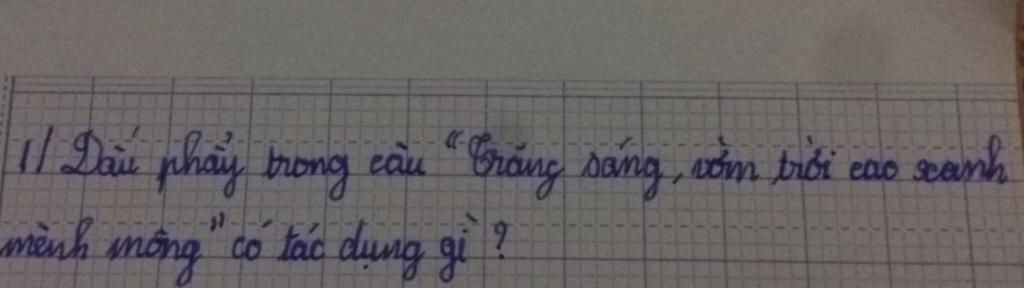 1/ Dấu phẩy trong câu "Trăng sáng, vòm trời cao xanh
mênh mông" có tác dụng gì?